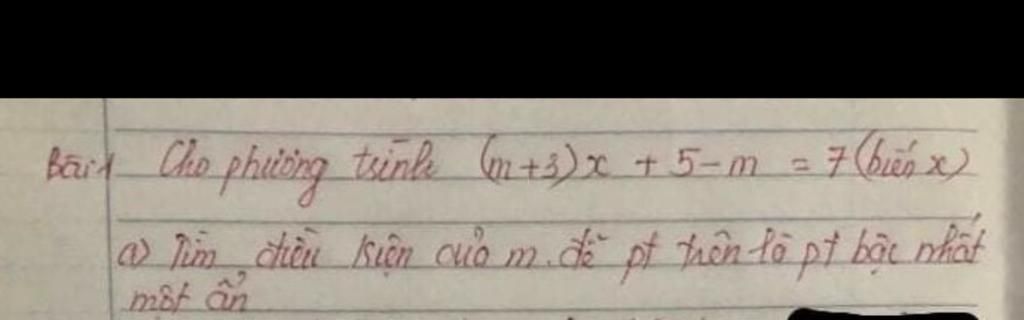 Bài 1 Cho phương trình (m+3)x + 5-m = 7 (biến x)
a) Tìm điều kiện của m. để pt trên là pt bậc nhất
một ẩn